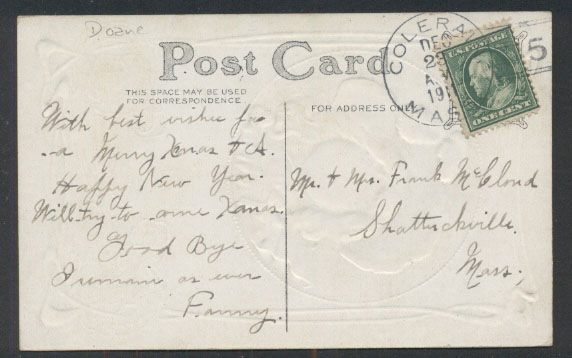 Doane
Post Card
THIS SPACE MAY BE USED
FOR CORRESPONDENCE
FOR ADDRESS ONLY
COLERA
DEC
MAS
5
U.S. POSTAGE
ONE CENT
With best wishes for
a Merry Xmas & A
Happy New Year.
Will try to come Xmas.
Good Bye
I remain as ever
Fanny.
Mr. & Mrs. Frank McCloud
Shattuckville.
Mass.